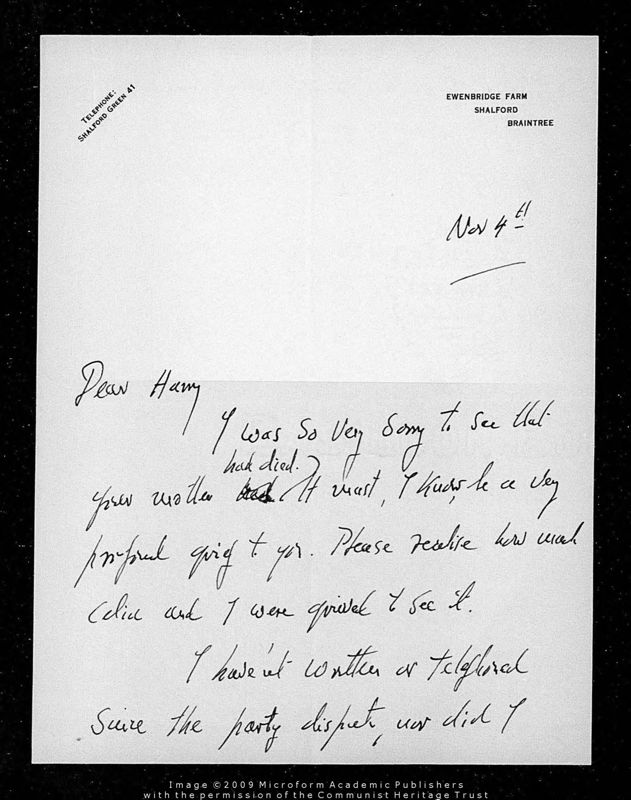 TELEPHONE:
SHALFORD GREEN 41
EWENBRIDGE FARM
SHALFORD
BRAINTREE
Nov 4th
Dear Harry
I was so very sorry to see that
had died.
your mother It must, I know, be a very
profound grief to you. Please realise how much
Celia and I were grieved to see it.
I have'nt written or telephoned
since the party dispute, nor did I
Image ©2009 Microform Academic Publishers
with the permission of the Communist Heritage Trust